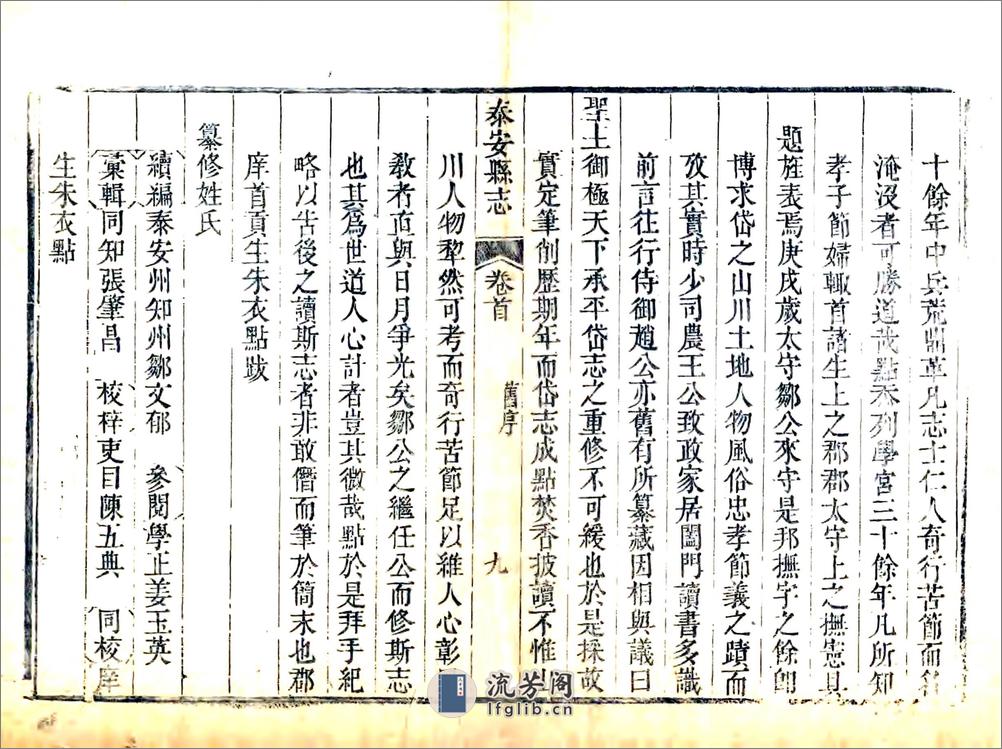 十餘年中兵荒鼎革凡志士仁人奇行苦節而名
淹沒者可勝道哉點忝列學宮三十餘年凡所知
孝子節婦輙首諸生上之郡郡太守上之撫憲具
題旌表焉庚戌歲太守鄒公來守是邦撫字之餘即
博求岱之山川土地人物風俗忠孝節義之蹟而
攷其實時少司農王公致政家居闔門讀書多識
前言往行侍御趙公亦舊有所纂藏因相與議曰
聖主御極天下承平岱志之重修不可緩也於是採故
實定筆削歷期年而岱志成點焚香披讀不惟山
泰安縣志 卷首 舊序 九
川人物犁然可考而奇行苦節足以維人心彰
教者直與日月爭光矣鄒公之繼任公而修斯志
也其爲世道人心計者豈其微哉點於是拜手紀
略以告後之讀斯志者非敢僭而筆於簡末也郡
庠首貢生朱衣點跋
纂修姓氏
續編泰安州知州鄒文郁 參閱學正姜玉英
彙輯同知張肇昌 校梓吏目陳五典 同校庠
生朱衣點
流芳阁
lfglib.cn